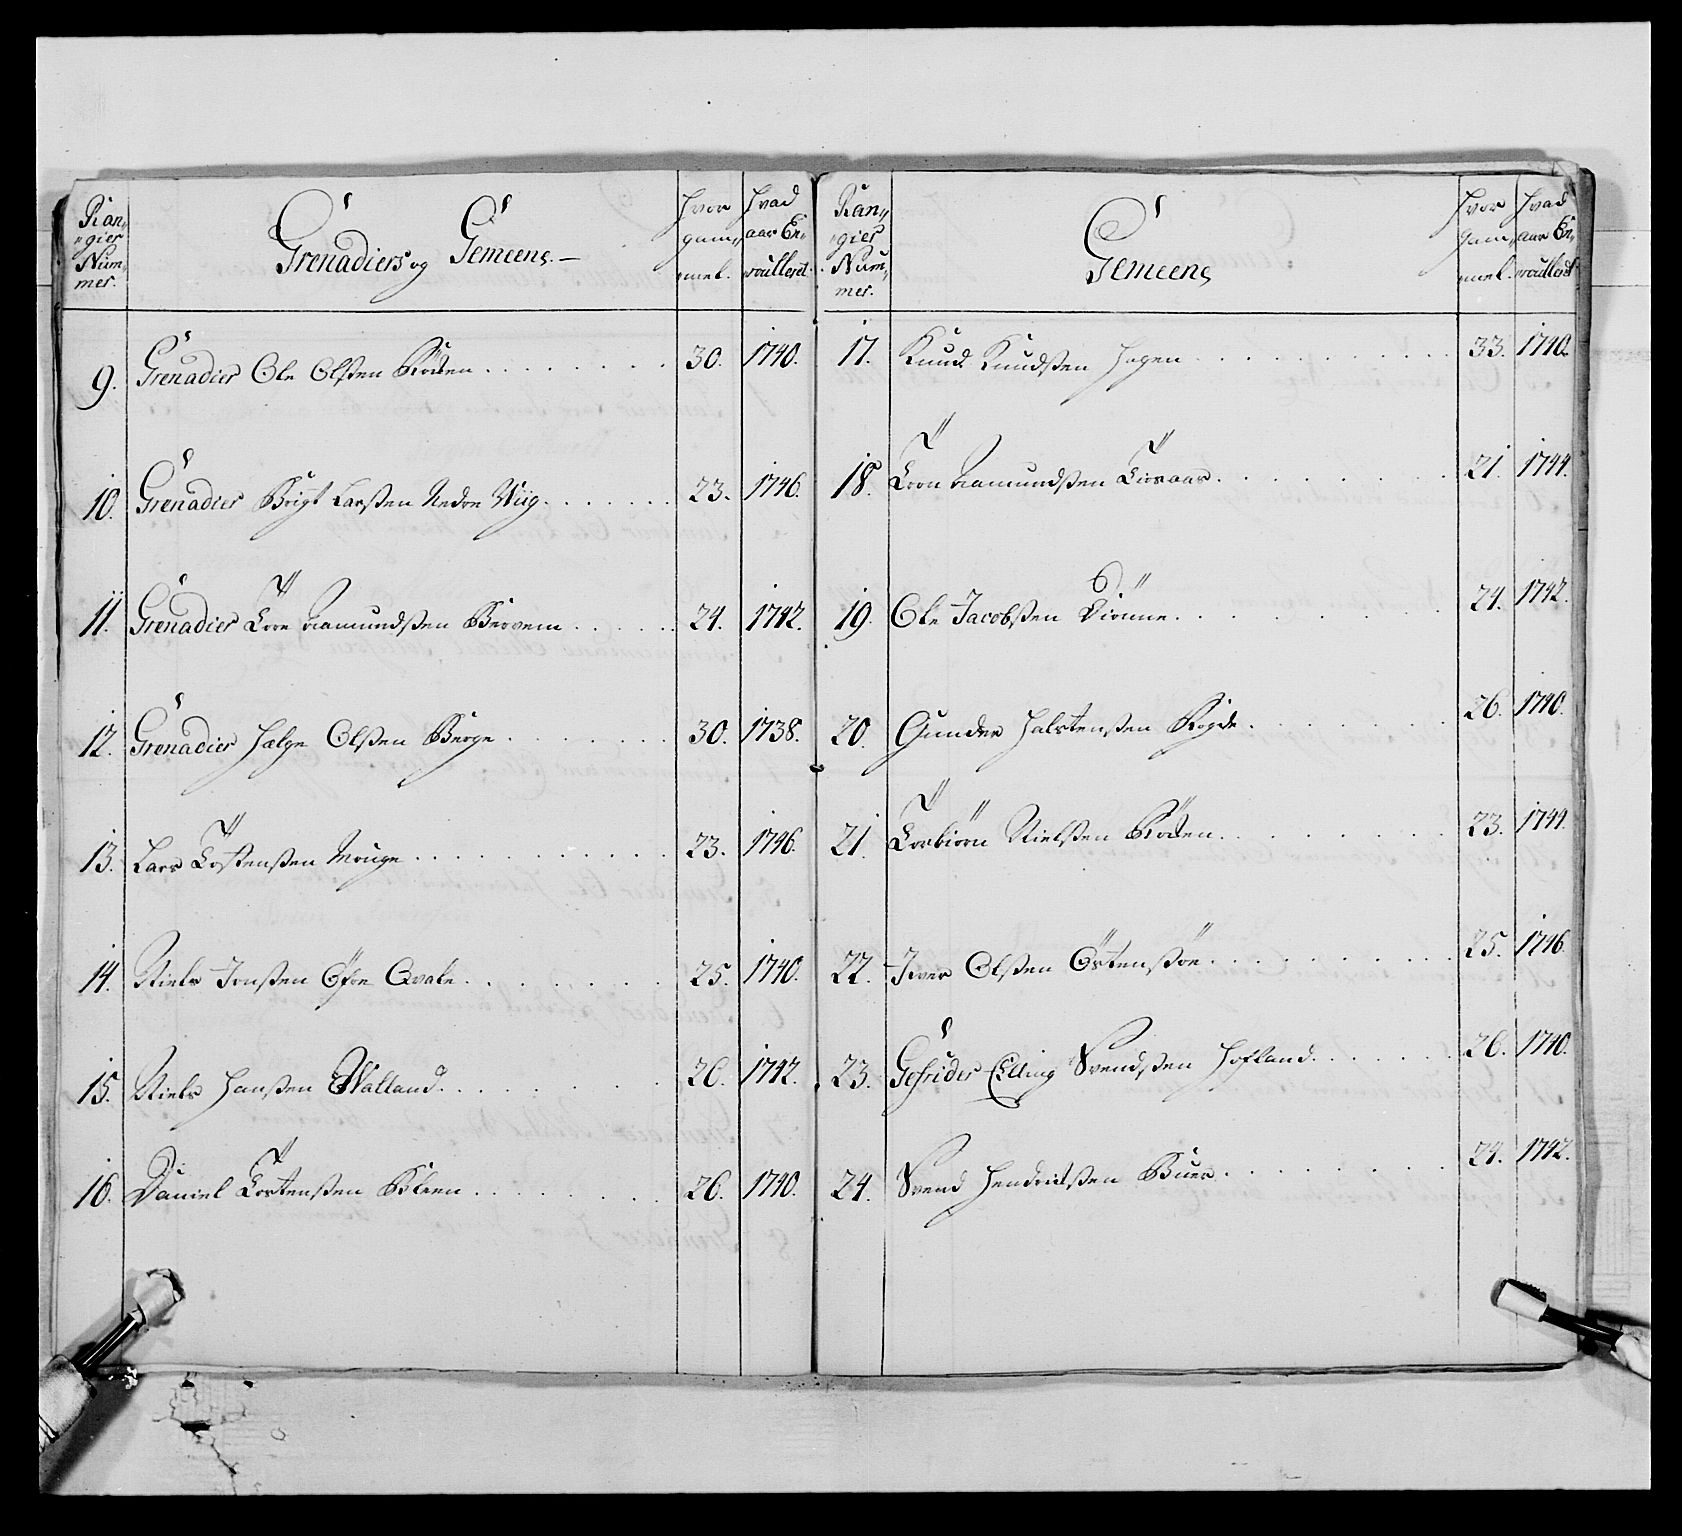 Ran-
gier
Num-
mer.
Grenadiers og Gemeene.
Hvor
gam-
mel.
Hvad
aar En-
roullerd.
9. Grenadier Ole Olssen Röden 30. 1740.
10. Grenadier Brigt Larssen Nedre Wiig 23. 1746.
11. Grenadier Tore Aamundssen Bervem 24. 1742.
12. Grenadier Helge Olssen Berge 30. 1738.
13. Lars Tostenssen Mouge 23. 1746.
14. Niels Jonssen Öfre Qvale 25. 1740.
15. Niels Hanssen Walland 26. 1742.
16. Daniel Torstenssen Bleen 26. 1740.
Ran-
gier
Num-
mer.
Gemeene
Hvor
gam-
mel.
Hvad
aar En-
roullerdt
17. Knud Knudssen Hagen 33. 1740.
18. Tron Aamundssen 21. 1744.
19. Ole Jacobssen 24. 1742.
20. Gunder Halstenssen Rogde 26. 1740.
21. Torbiörn Nielssen Röden 23. 1744.
22. Iver Olssen Östenssöe 25. 1746.
23. Gefrider Elling Svendssen Hofland 26. 1740.
24. Svend Hendrichssen Buer 24. 1742.